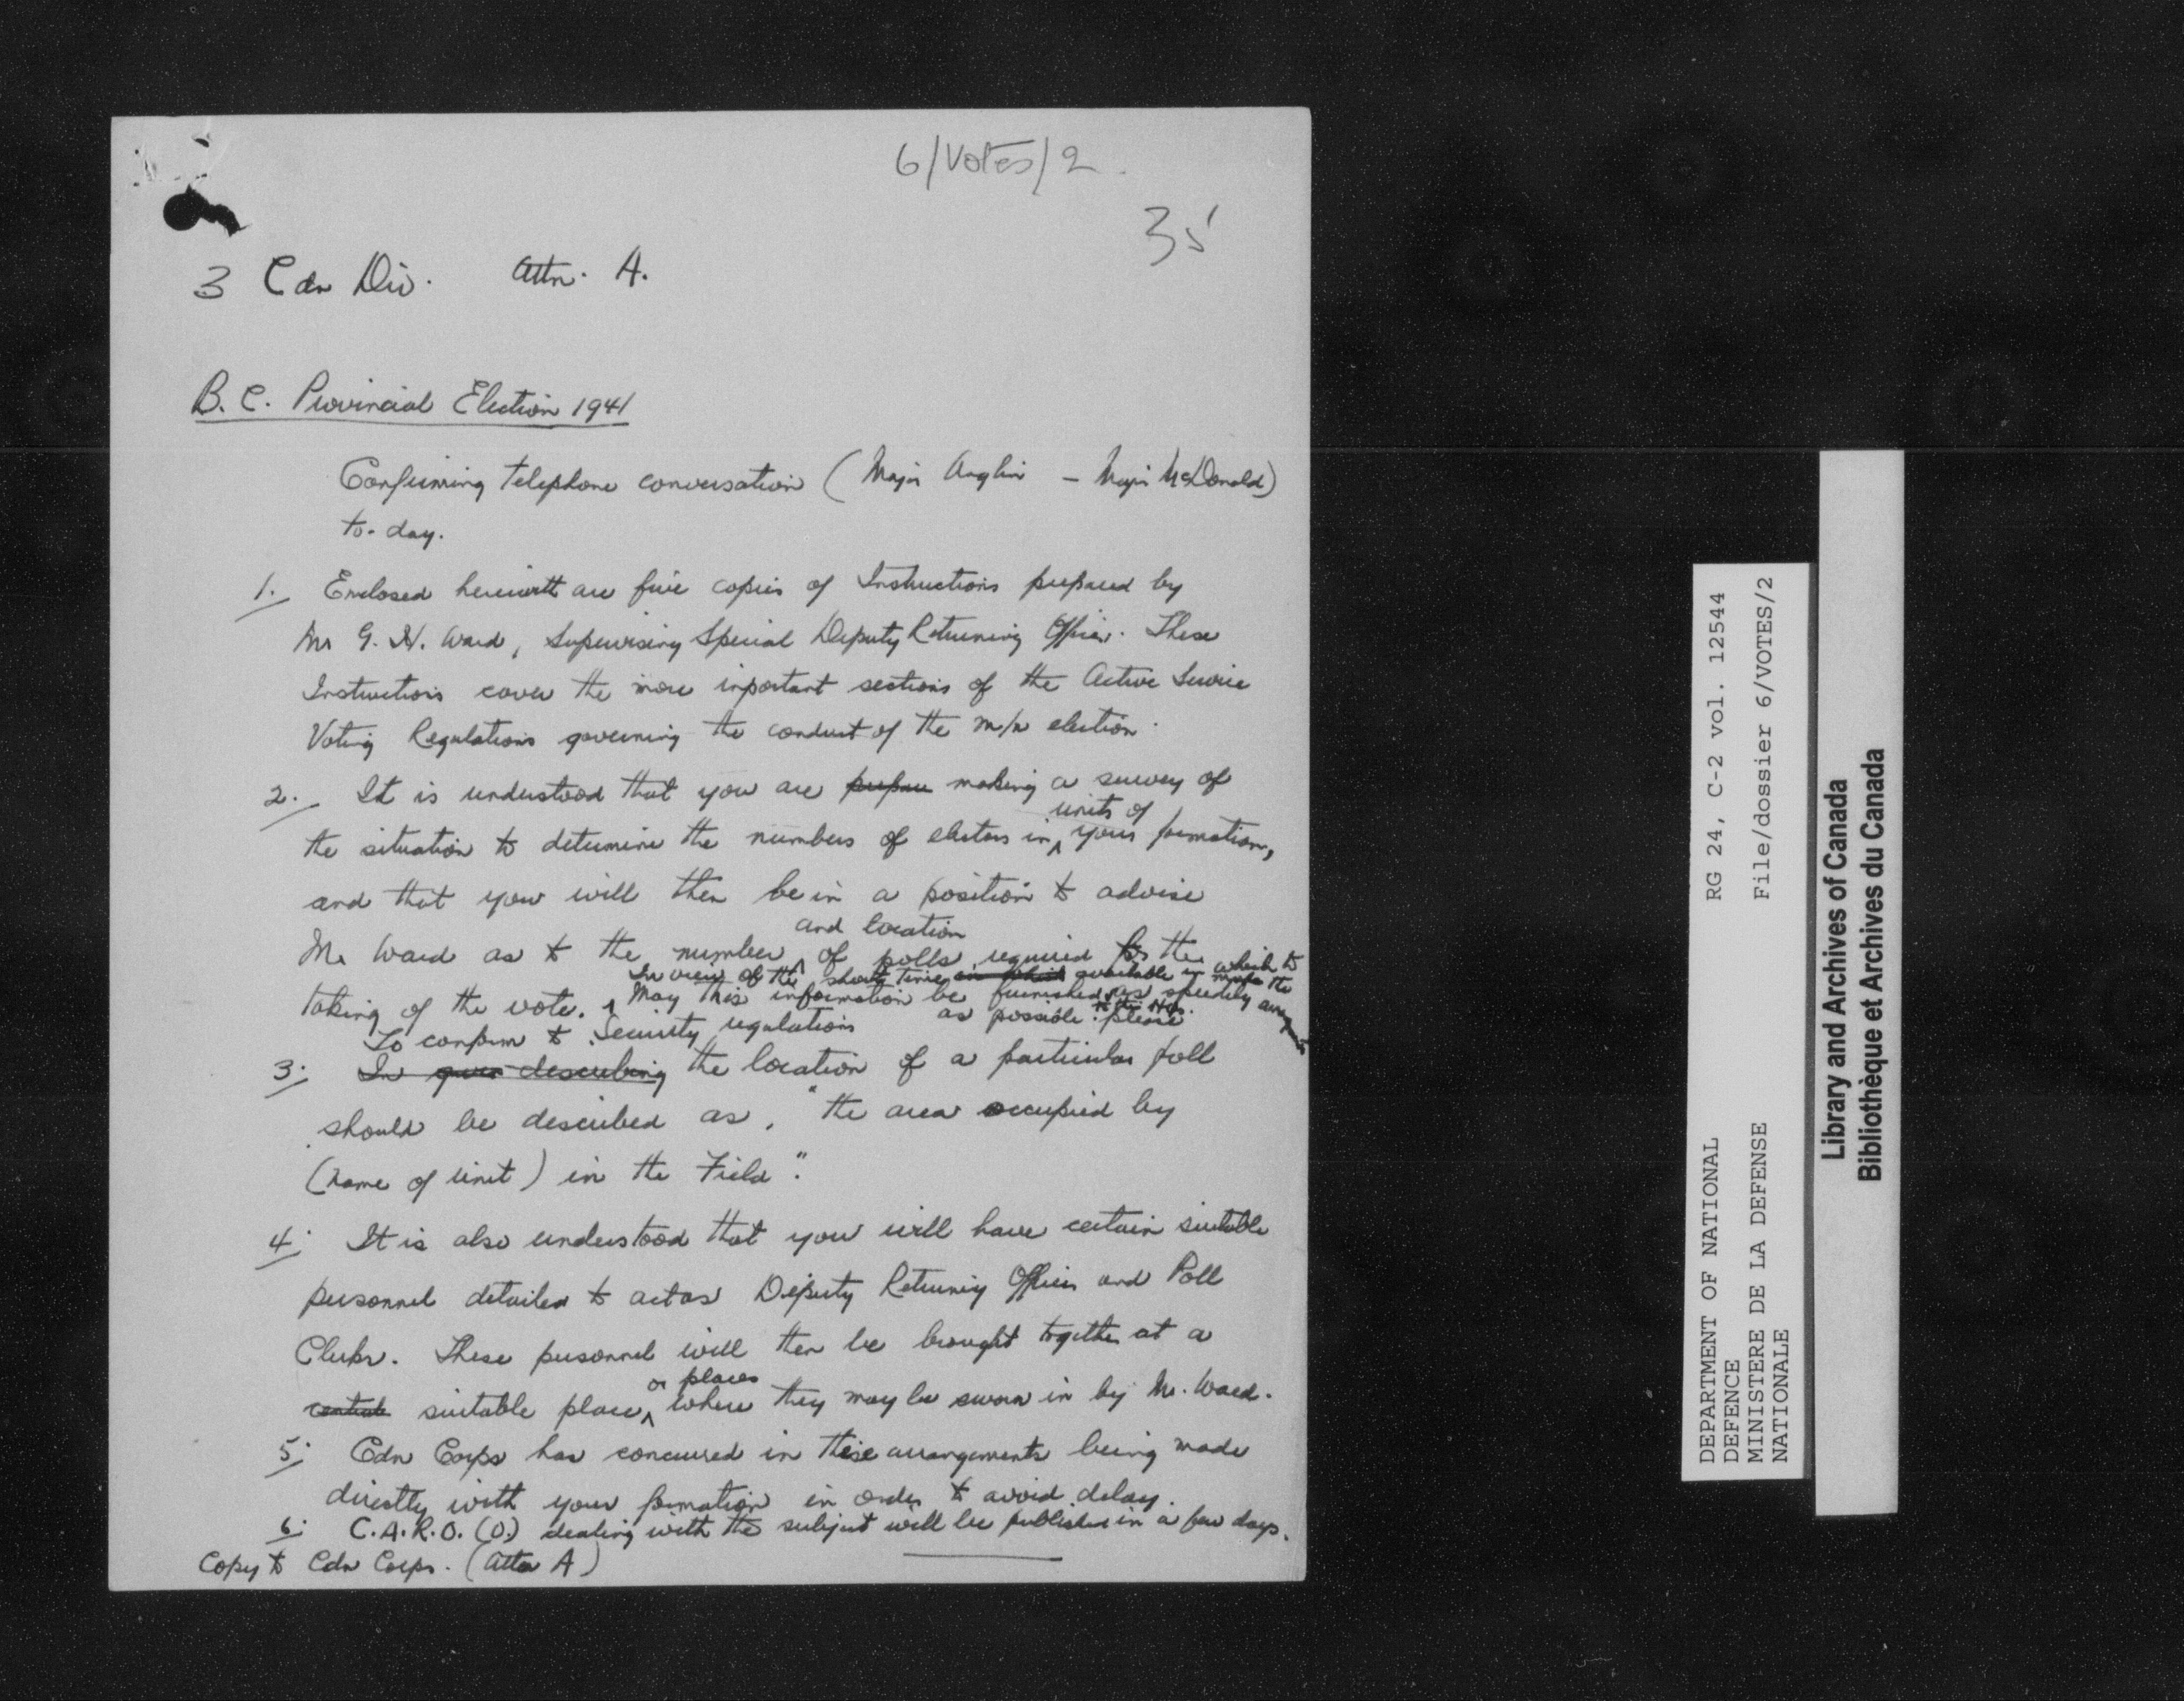 6/Votes/2
35
3 Cdn Div. Attn. A.
B.C. Provincial Election 1941
Confirming telephone conversation (Major Anglin – Major McDonald)
to-day.
1. Enclosed herewith are five copies of Instructions prepared by
Mr G. H. Ward, Supervising Special Deputy Returning Officer. These
Instructions cover the more important sections of the Active Service
Voting Regulations governing the conduct of the m/n election.
2. It is understood that you are prepare making a survey of
units of
the situation to determine the numbers of electors in your formation,
and that you will then be in a position to advise
and location
Mr Ward as to the number of polls required for the
In view of the short time in which available in which to make the
taking of the vote. May this information be furnished as speedily
to this HQ.
as possible please
To conform to Security regulations
3. In describing the location of a particular poll
should be described as, "the area occupied by
(name of unit) in the Field".
4. It is also understood that you will have certain suitable
personnel detailed to act as Deputy Returning Officers and Poll
Clerks. These personnel will then be brought together at a
or places
central suitable place, where they may be sworn in by Mr. Ward.
5. Cdn Corps has concurred in these arrangements being made
directly with your formation in order to avoid delay.
6. C.A.R.O. (O.) dealing with the subject will be published in a few days.
Copy to Cdn Corps. (Attn A)
RG 24, C-2 vol. 12544
File/dossier 6/VOTES/2
DEPARTMENT OF NATIONAL
DEFENCE
MINISTERE DE LA DEFENSE
NATIONALE
Library and Archives of Canada
Bibliothèque et Archives du Canada